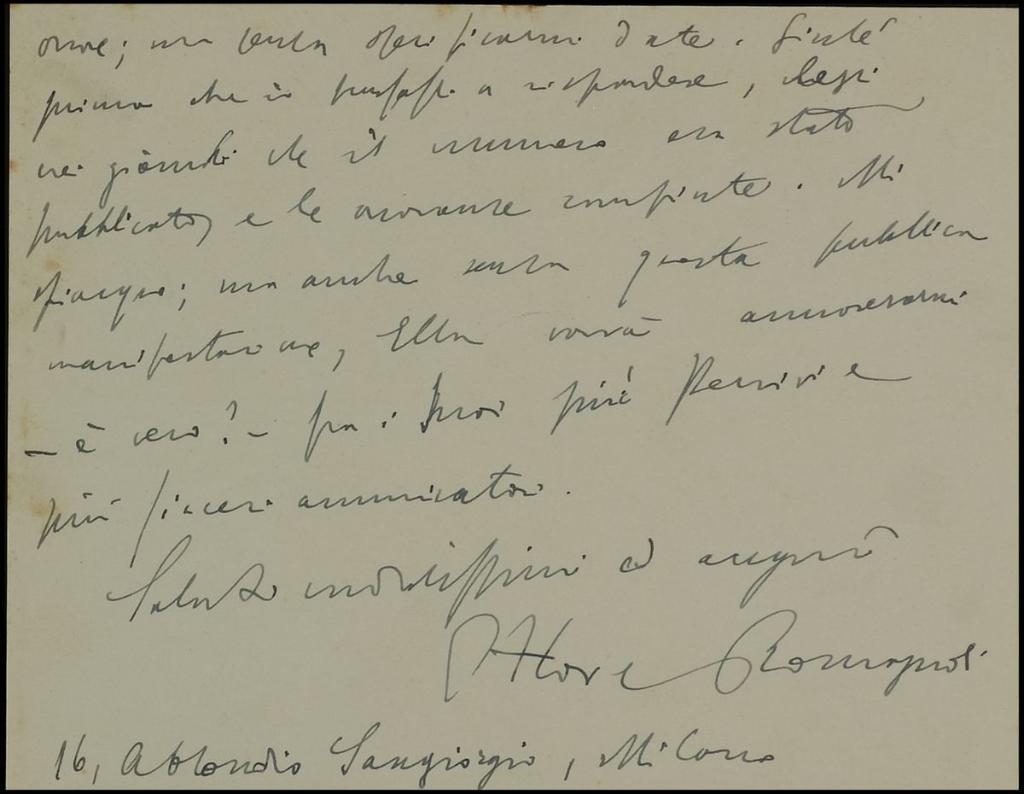 onore; ma senza specificarmi date. Sicché
prima che io pensassi a rispondere, lessi
nei giornali che il numero era stato
pubblicato, e le onoranze compiute. Mi
spiacque; ma anche senza questa pubblica
manifestazione, Ella vorrà annoverarmi
- è vero? - fra i suoi più fervidi e
più sinceri ammiratori.
Saluti cordialissimi ed auguri
Ettore Romagnoli
16, Abbondio Sangiorgio, Milano